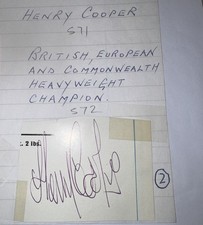 HENRY COOPER
S71
BRITISH, EUROPEAN
AND COMMONWEALTH
HEAVYWEIGHT
CHAMPION.
S72
. 2 lbs.
Henry Cooper
2